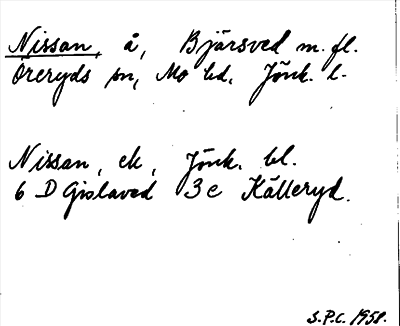 Nissan, å, Bjärsved m. fl.
Öreryds sn, Mo hd, Jönk. l.
Nissan, ek, Jönk. bl.
6 D Gislaved 3 c Källeryd.
S.P.C. 1958.